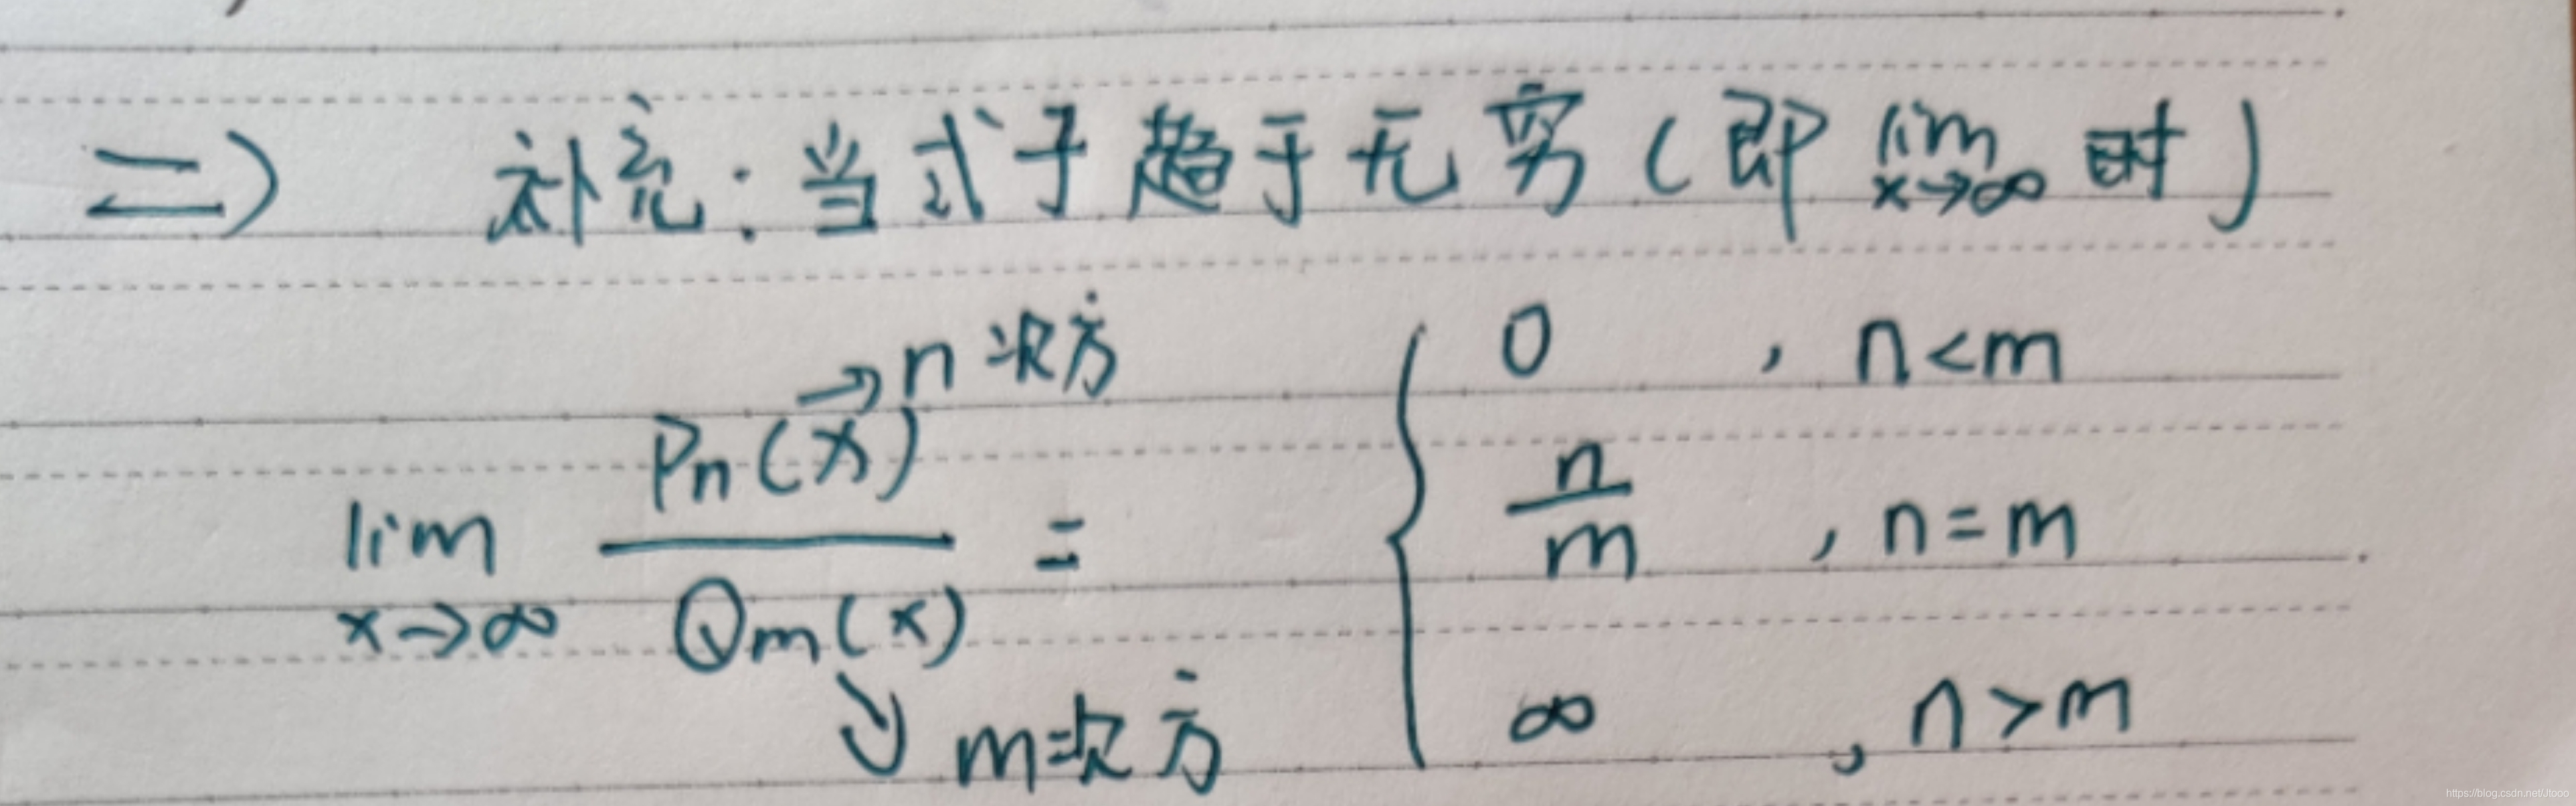 => 补充:当式子趋于无穷(即 lim x→∞ 时)
→n次方
lim x→∞ Pn(x) / Qm(x) = { 0 , n<m
n/m , n=m
∞ , n>m
↘ m次方
https://blog.csdn.net/Jtooo